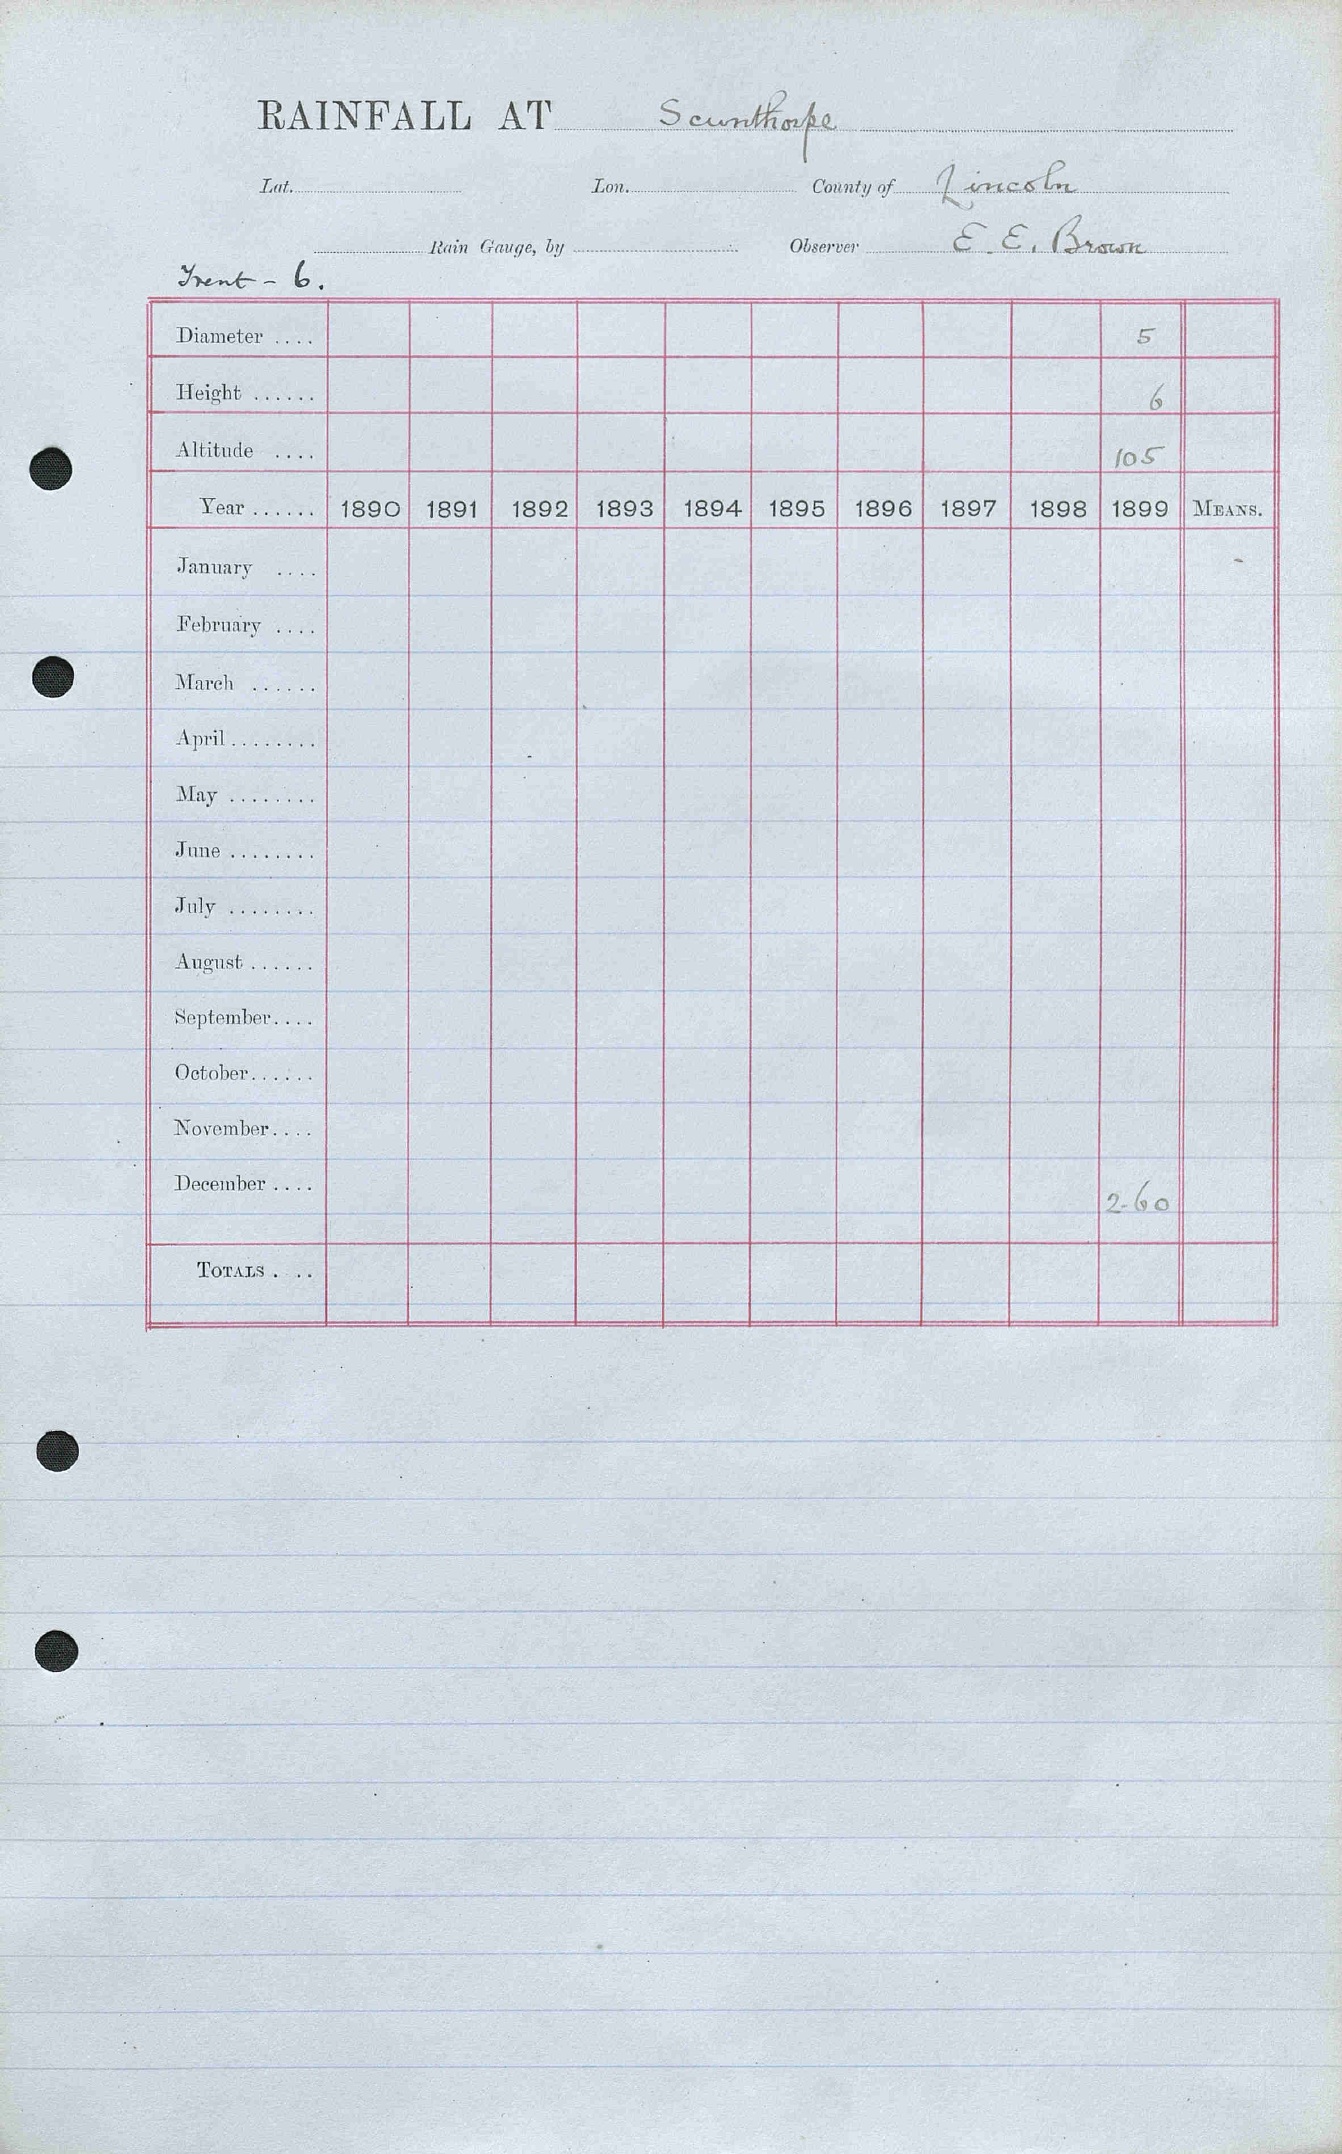 RAINFALL AT Scunthorpe
Lat. Lon. County of Lincoln
Rain Gauge, by Observer E. E. Brown
Trent - 6.
Diameter .... 5
Height ...... 6
Altitude .... 105
Year ...... 1890 1891 1892 1893 1894 1895 1896 1897 1898 1899 MEANS.
January ....
February ....
March ......
April ........
May ........
June ........
July ........
August ......
September ....
October ......
November ....
December .... 2.60
TOTALS . ..